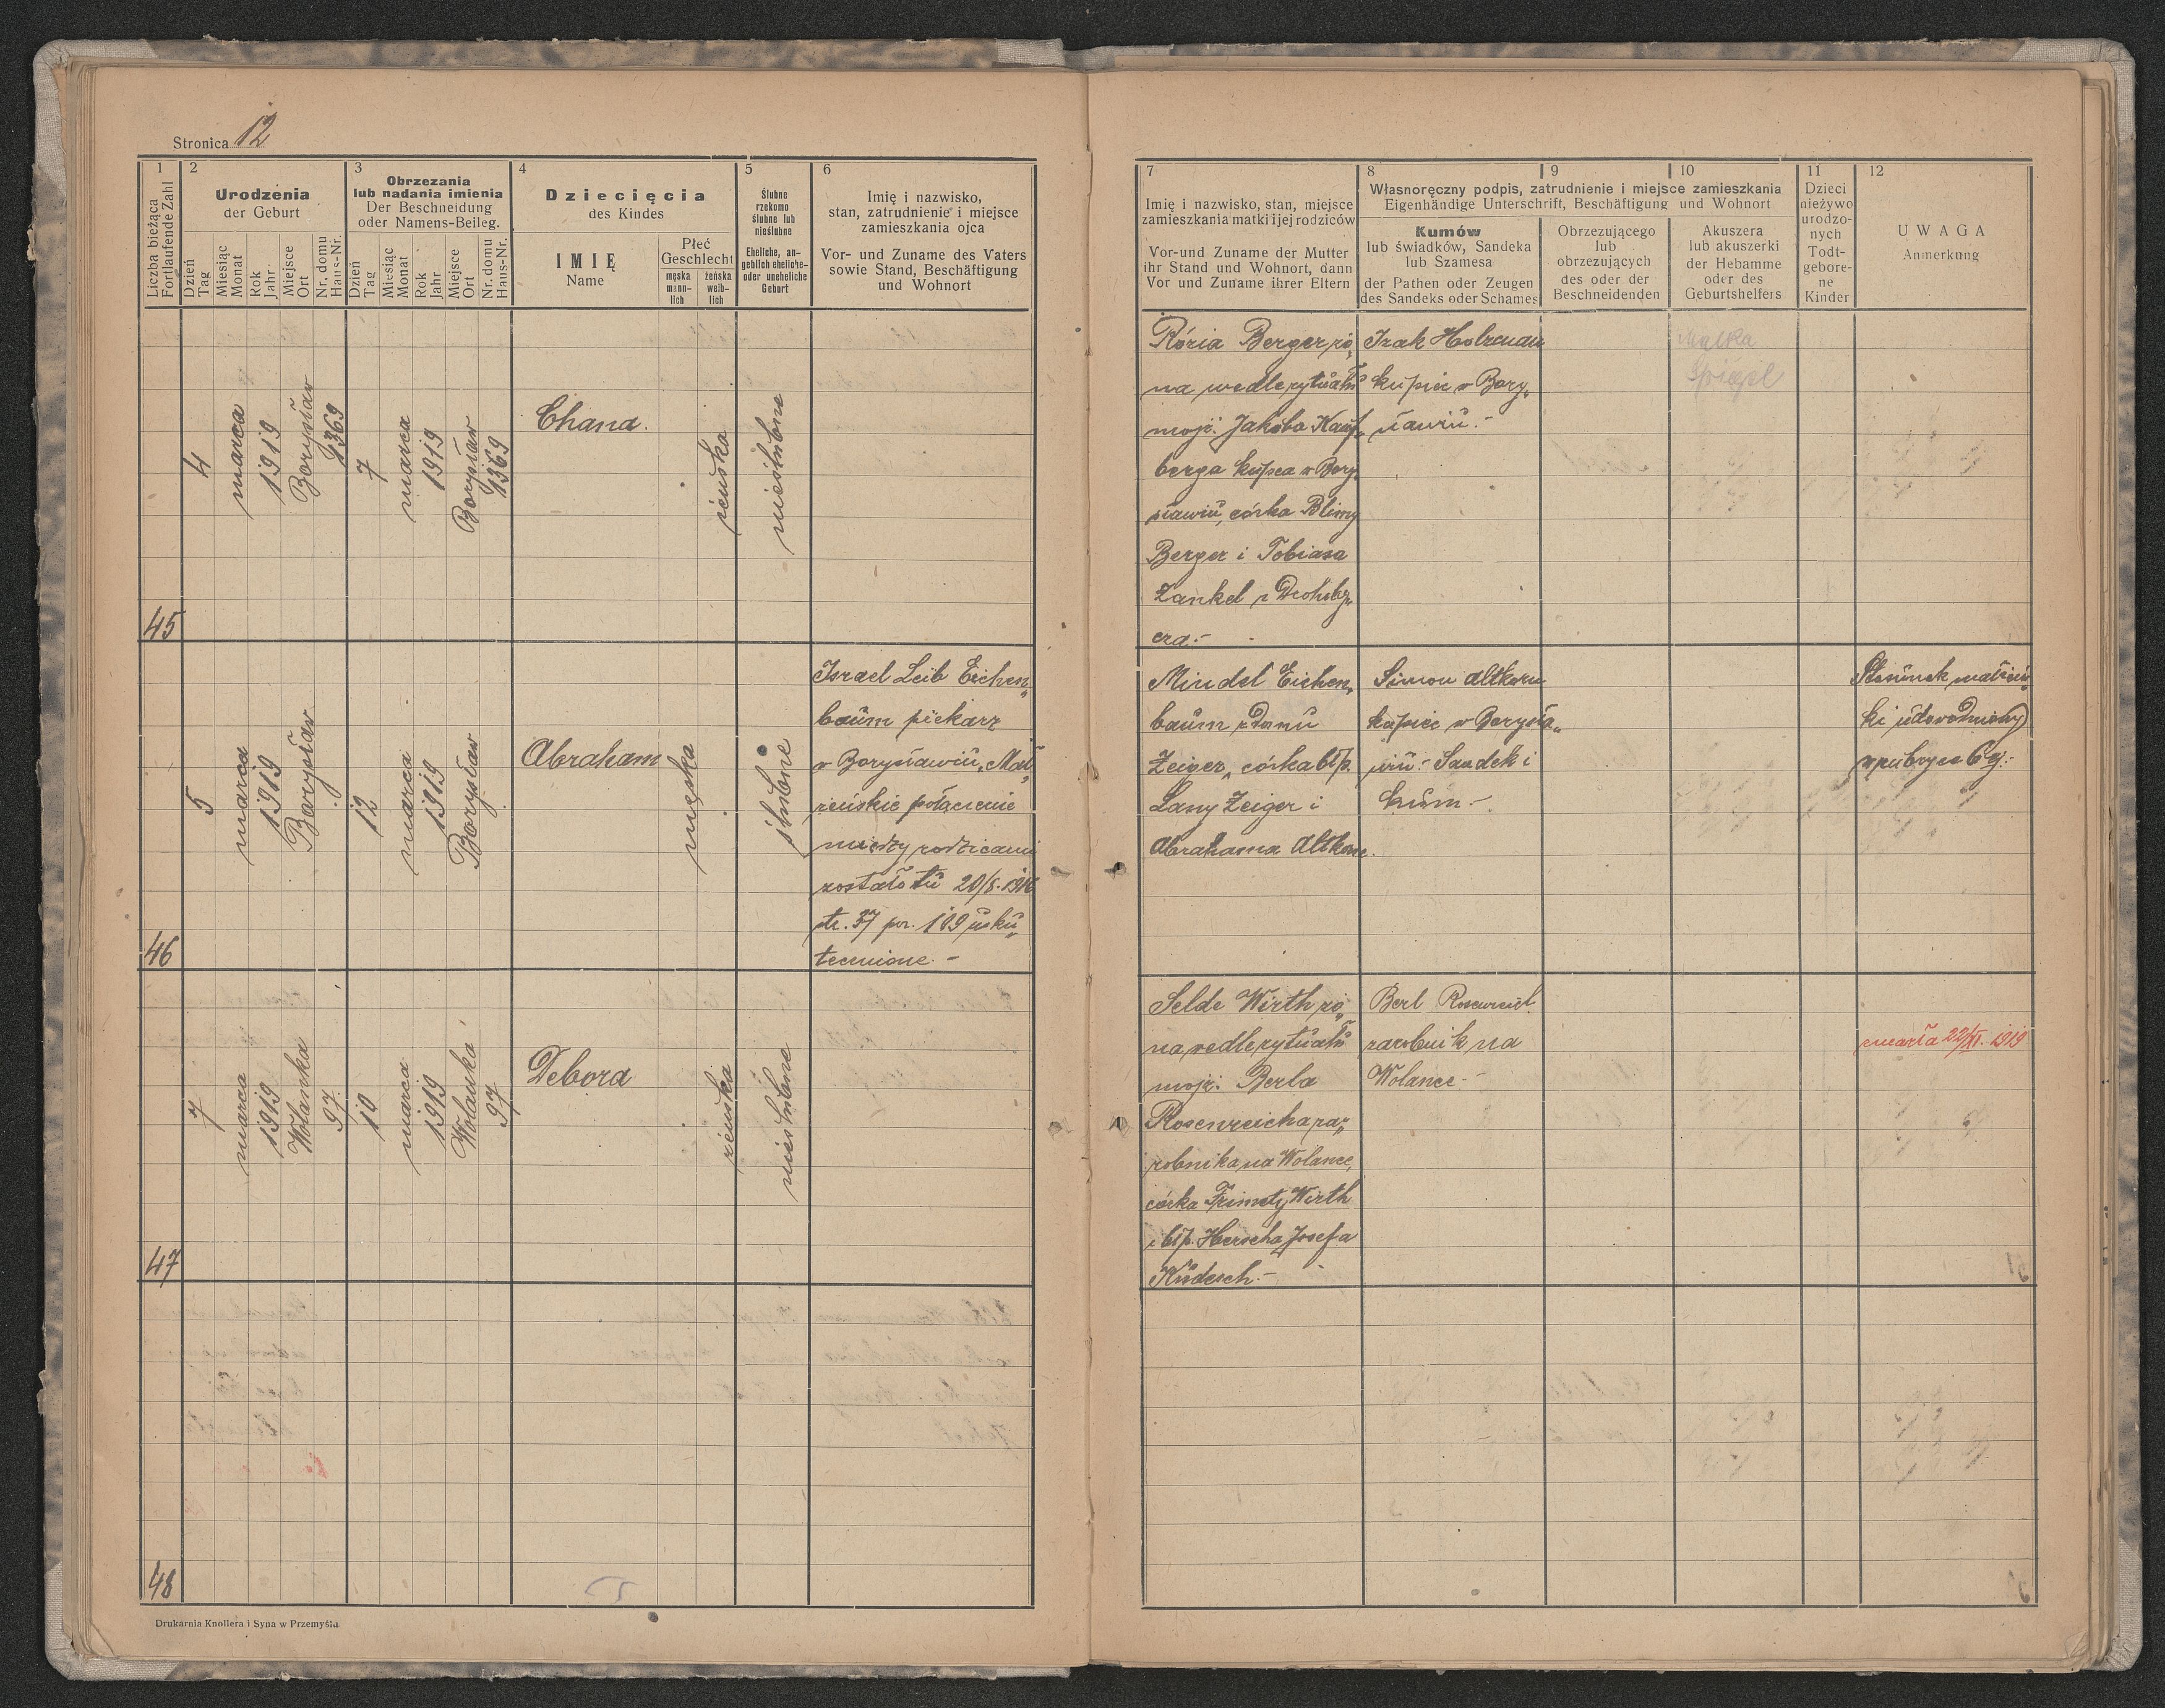 Stronica 12
1
Liczba bieżąca
Fortlaufende Zahl
2
Urodzenia
der Geburt
Dzień
Tag
Miesiąc
Monat
Rok
Jahr
Miejsce
Ort
Nr. domu
Haus-Nr.
3
Obrzezania
lub nadania imienia
Der Beschneidung
oder Namens-Beileg.
Dzień
Tag
Miesiąc
Monat
Rok
Jahr
Miejsce
Ort
Nr. domu
Haus-Nr.
4
Dziecięcia
des Kindes
IMIĘ
Name
Płeć
Geschlecht
męska
männ-
lich
żeńska
weib-
lich
5
Ślubne
rzekomo
ślubne lub
nieślubne
Eheliche, an-
geblich eheliche-
oder uneheliche
Geburt
6
Imię i nazwisko,
stan, zatrudnienie i miejsce
zamieszkania ojca
Vor- und Zuname des Vaters
sowie Stand, Beschäftigung
und Wohnort
7
Imię i nazwisko, stan, miejsce
zamieszkania matki i jej rodziców
Vor-und Zuname der Mutter
ihr Stand und Wohnort, dann
Vor und Zuname ihrer Eltern
8
9
10
Własnoręczny podpis, zatrudnienie i miejsce zamieszkania
Eigenhändige Unterschrift, Beschäftigung und Wohnort
Kumów
lub świadków, Sandeka
lub Szamesa
der Pathen oder Zeugen
des Sandeks oder Schames
Obrzezującego
lub
obrzezujących
des oder der
Beschneidenden
Akuszera
lub akuszerki
der Hebamme
oder des
Geburtshelfers
11
Dzieci
nieżywo
urodzo-
nych
Todt-
gebore-
ne
Kinder
12
UWAGA
Anmerkung
45
4
marca
1919
Borysław
1369
7
marca
1919
Borysław
1369
Chana.
żeńska
nieślubne
Rózia Berger żo„
na wedle rytuału
mojż. Jakóba Kauf„
berga kupca w Bory„
sławiu, córka Blimy
Berger i Tobiasa
Zankel z Drohoby„
cza.-
Izak
kupiec w Bory„
sławiu.-
Malka
Spiegel
46
5
marca
1919
Borysław
12
marca
1919
Borysław
Abraham
męska
ślubne
Israel Leib Eichen„
baum piekarz
w Borysławiu. Mał„
żeńskie połączenie
między rodzicami
zostało tu 20/8. 1916
str. 37 por. 109 usku„
tecznione.-
Mindel Eichen„
baum z domu
Zeiger, córka błp.
Lany Zeiger i
Abrahama Altkorn.
Simon Altkorn
kupiec w Borysła„
wiu.- Sandek i
kum.-
Stosunek małżeń„
ki udowodniony
47
7
marca
1919
Wolanka
97
10
marca
1919
Wolanka
97
Debora
żeńska
nieślubne
Selde Wirth żo„
na wedle rytuału
mojż. Berla
Rosenreicha za„
robnika na Wolance,
córka Frimety Wirth
i błp. Herscha Josefa
Kudesch.-
Berl Rosenreich
zarobnik na
Wolance.-
zmarła 22/XI. 1919
48
Drukarnia Knollera i Syna w Przemyślu.